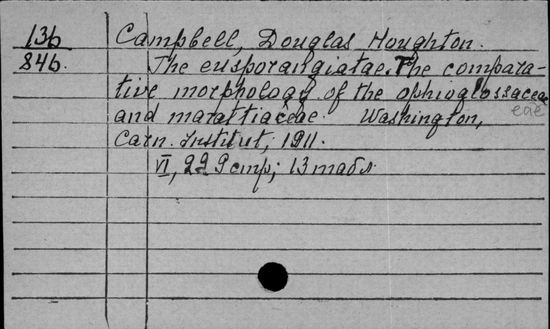 13b Campbell, Douglas Houghton.
846. The eusporangiatae. The compara-
tive morphology of the ophioglossaceae
and marattiaceae. Washington, eae
Carn. Institut, 1911.
VI, 229 стр; 13 табл